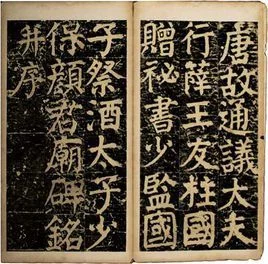 唐故通議大夫
行薛王友柱國
贈祕書少監國
子祭酒太子少
保顏君廟碑銘
并序